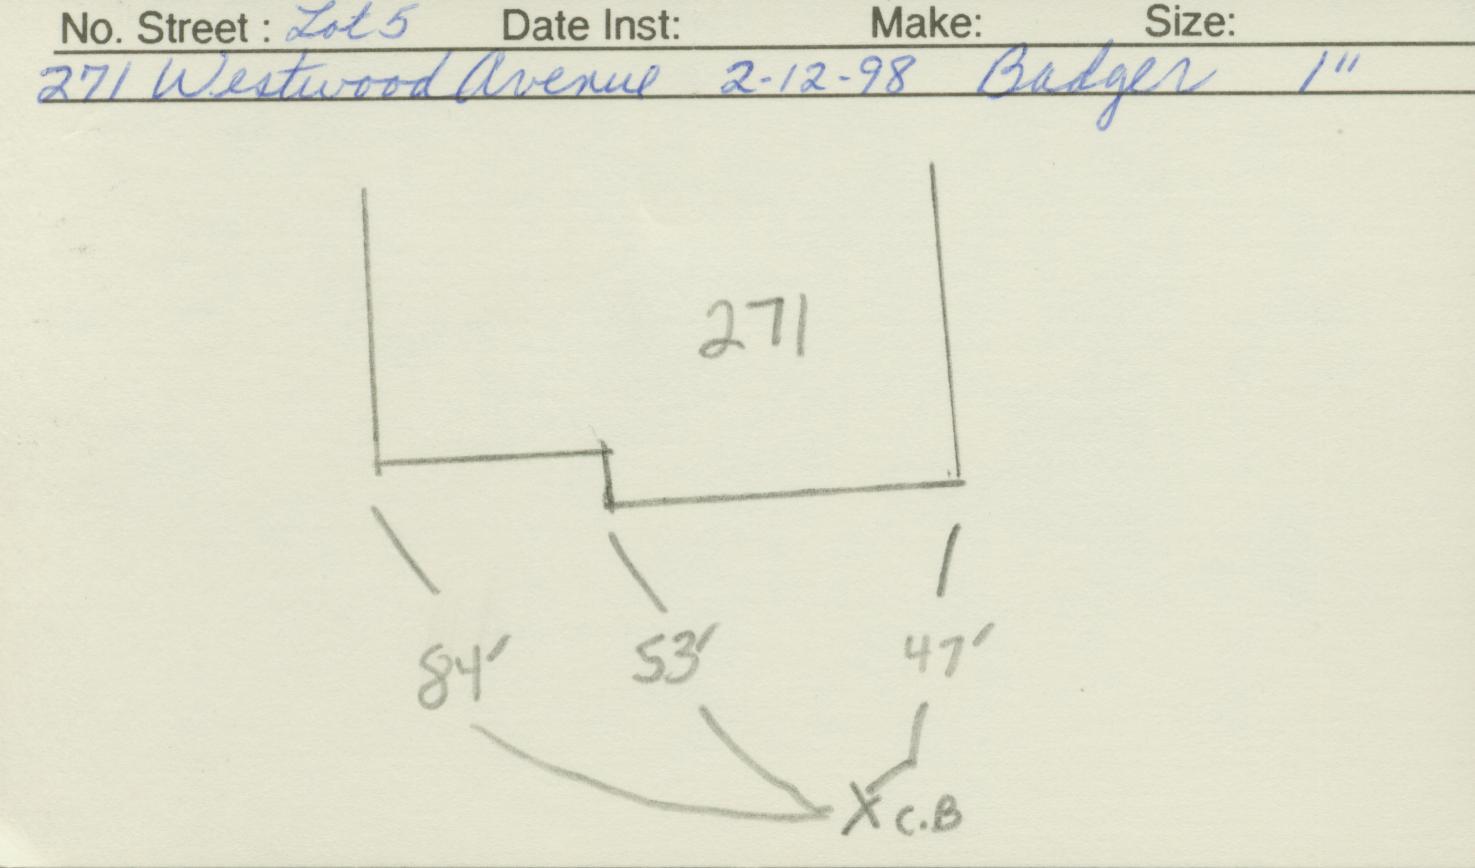 No. Street : Lot 5 Date Inst: Make: Size:
271 Westwood Avenue 2-12-98 Badger 1"
271
84' 53' 47'
X C.B